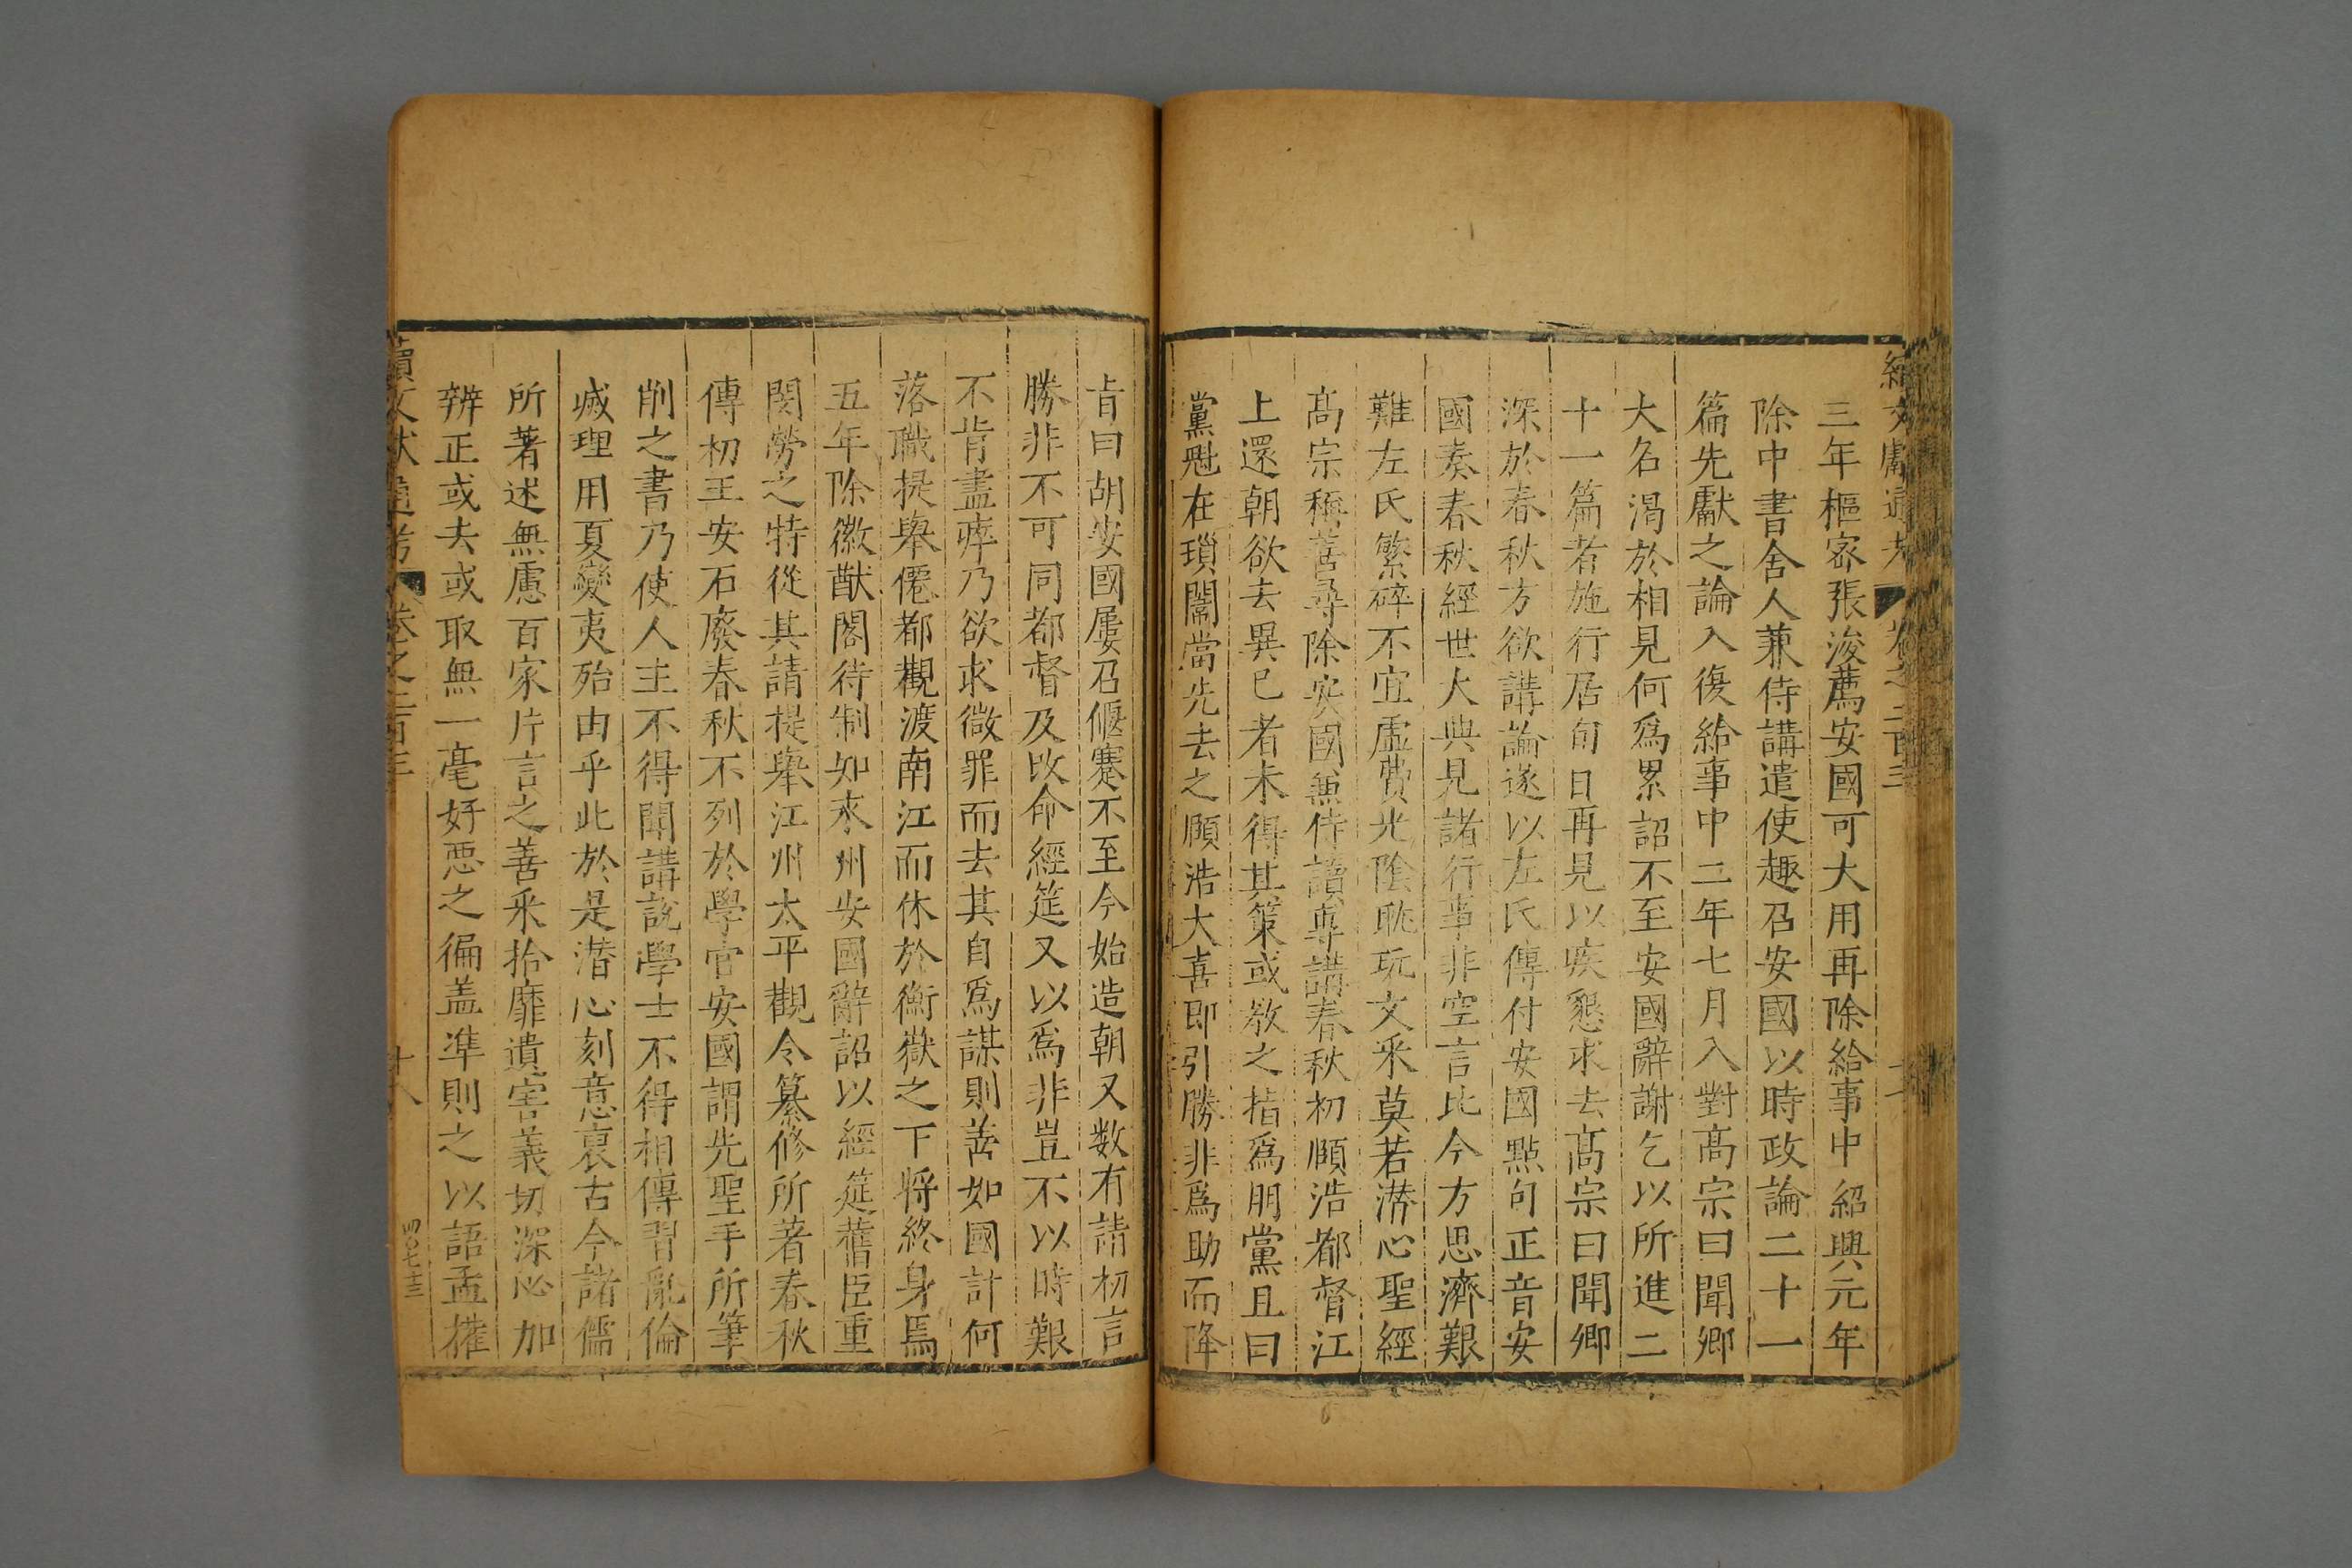 三年樞宻張浚薦安國可大用再除給事中紹興元年
除中書舍人兼侍講遣使趣召安國以時政論二十一
篇先獻之論入復給事中二年七月入對髙宗曰聞卿
大名渴於相見何爲累詔不至安國辭謝乞以所進二
十一篇者施行居旬日再見以疾懇求去髙宗曰聞卿
深於春秋方欲講論遂以左氏傳付安國點句正音安
國奏春秋經世大典見諸行事非空言比今方思濟艱
難左氏繁碎不宜虛費光陰耽玩文采莫若潜心聖經
髙宗稱善尋除安國兼侍讀專講春秋初頤浩都督江
上還朝欲去異已者未得其策或教之指爲朋黨且曰
黨魁在瑣闥當先去之頤浩大喜即引勝非爲助而降
旨曰胡安國屢召偃蹇不至今始造朝又数有請初言
勝非不可同都督及改命經筵又以爲非豈不以時艱
不肯盡瘁乃欲求微罪而去其自爲謀則善如國計何
落職提舉僊都觀渡南江而休於衡嶽之下將終身焉
五年除徽猷閣待制知永州安國辭詔以經筵舊臣重
閔勞之特從其請提舉江州太平觀令纂修所著春秋
傳初王安石廢春秋不列於學官安國謂先聖手所筆
削之書乃使人主不得聞講說學士不得相傳習亂倫
滅理用夏變夷殆由乎此於是潜心刻意裒古今諸儒
所著述無慮百家片言之善采拾靡遺害義切深必加
辨正或去或取無一毫好惡之徧盖凖則之以語孟攉
續文獻通考 卷之二百三 十八
四〇七十三